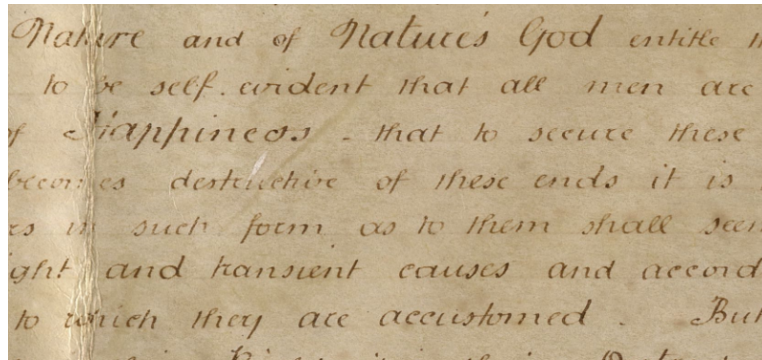 Nature and of Nature's God entitle
to be self. evident that all men are
of Happiness - that to secure these
becomes destructive of these ends it is
in such form as to them shall seem
ight and transient causes and accord
to which they are accustomed . But